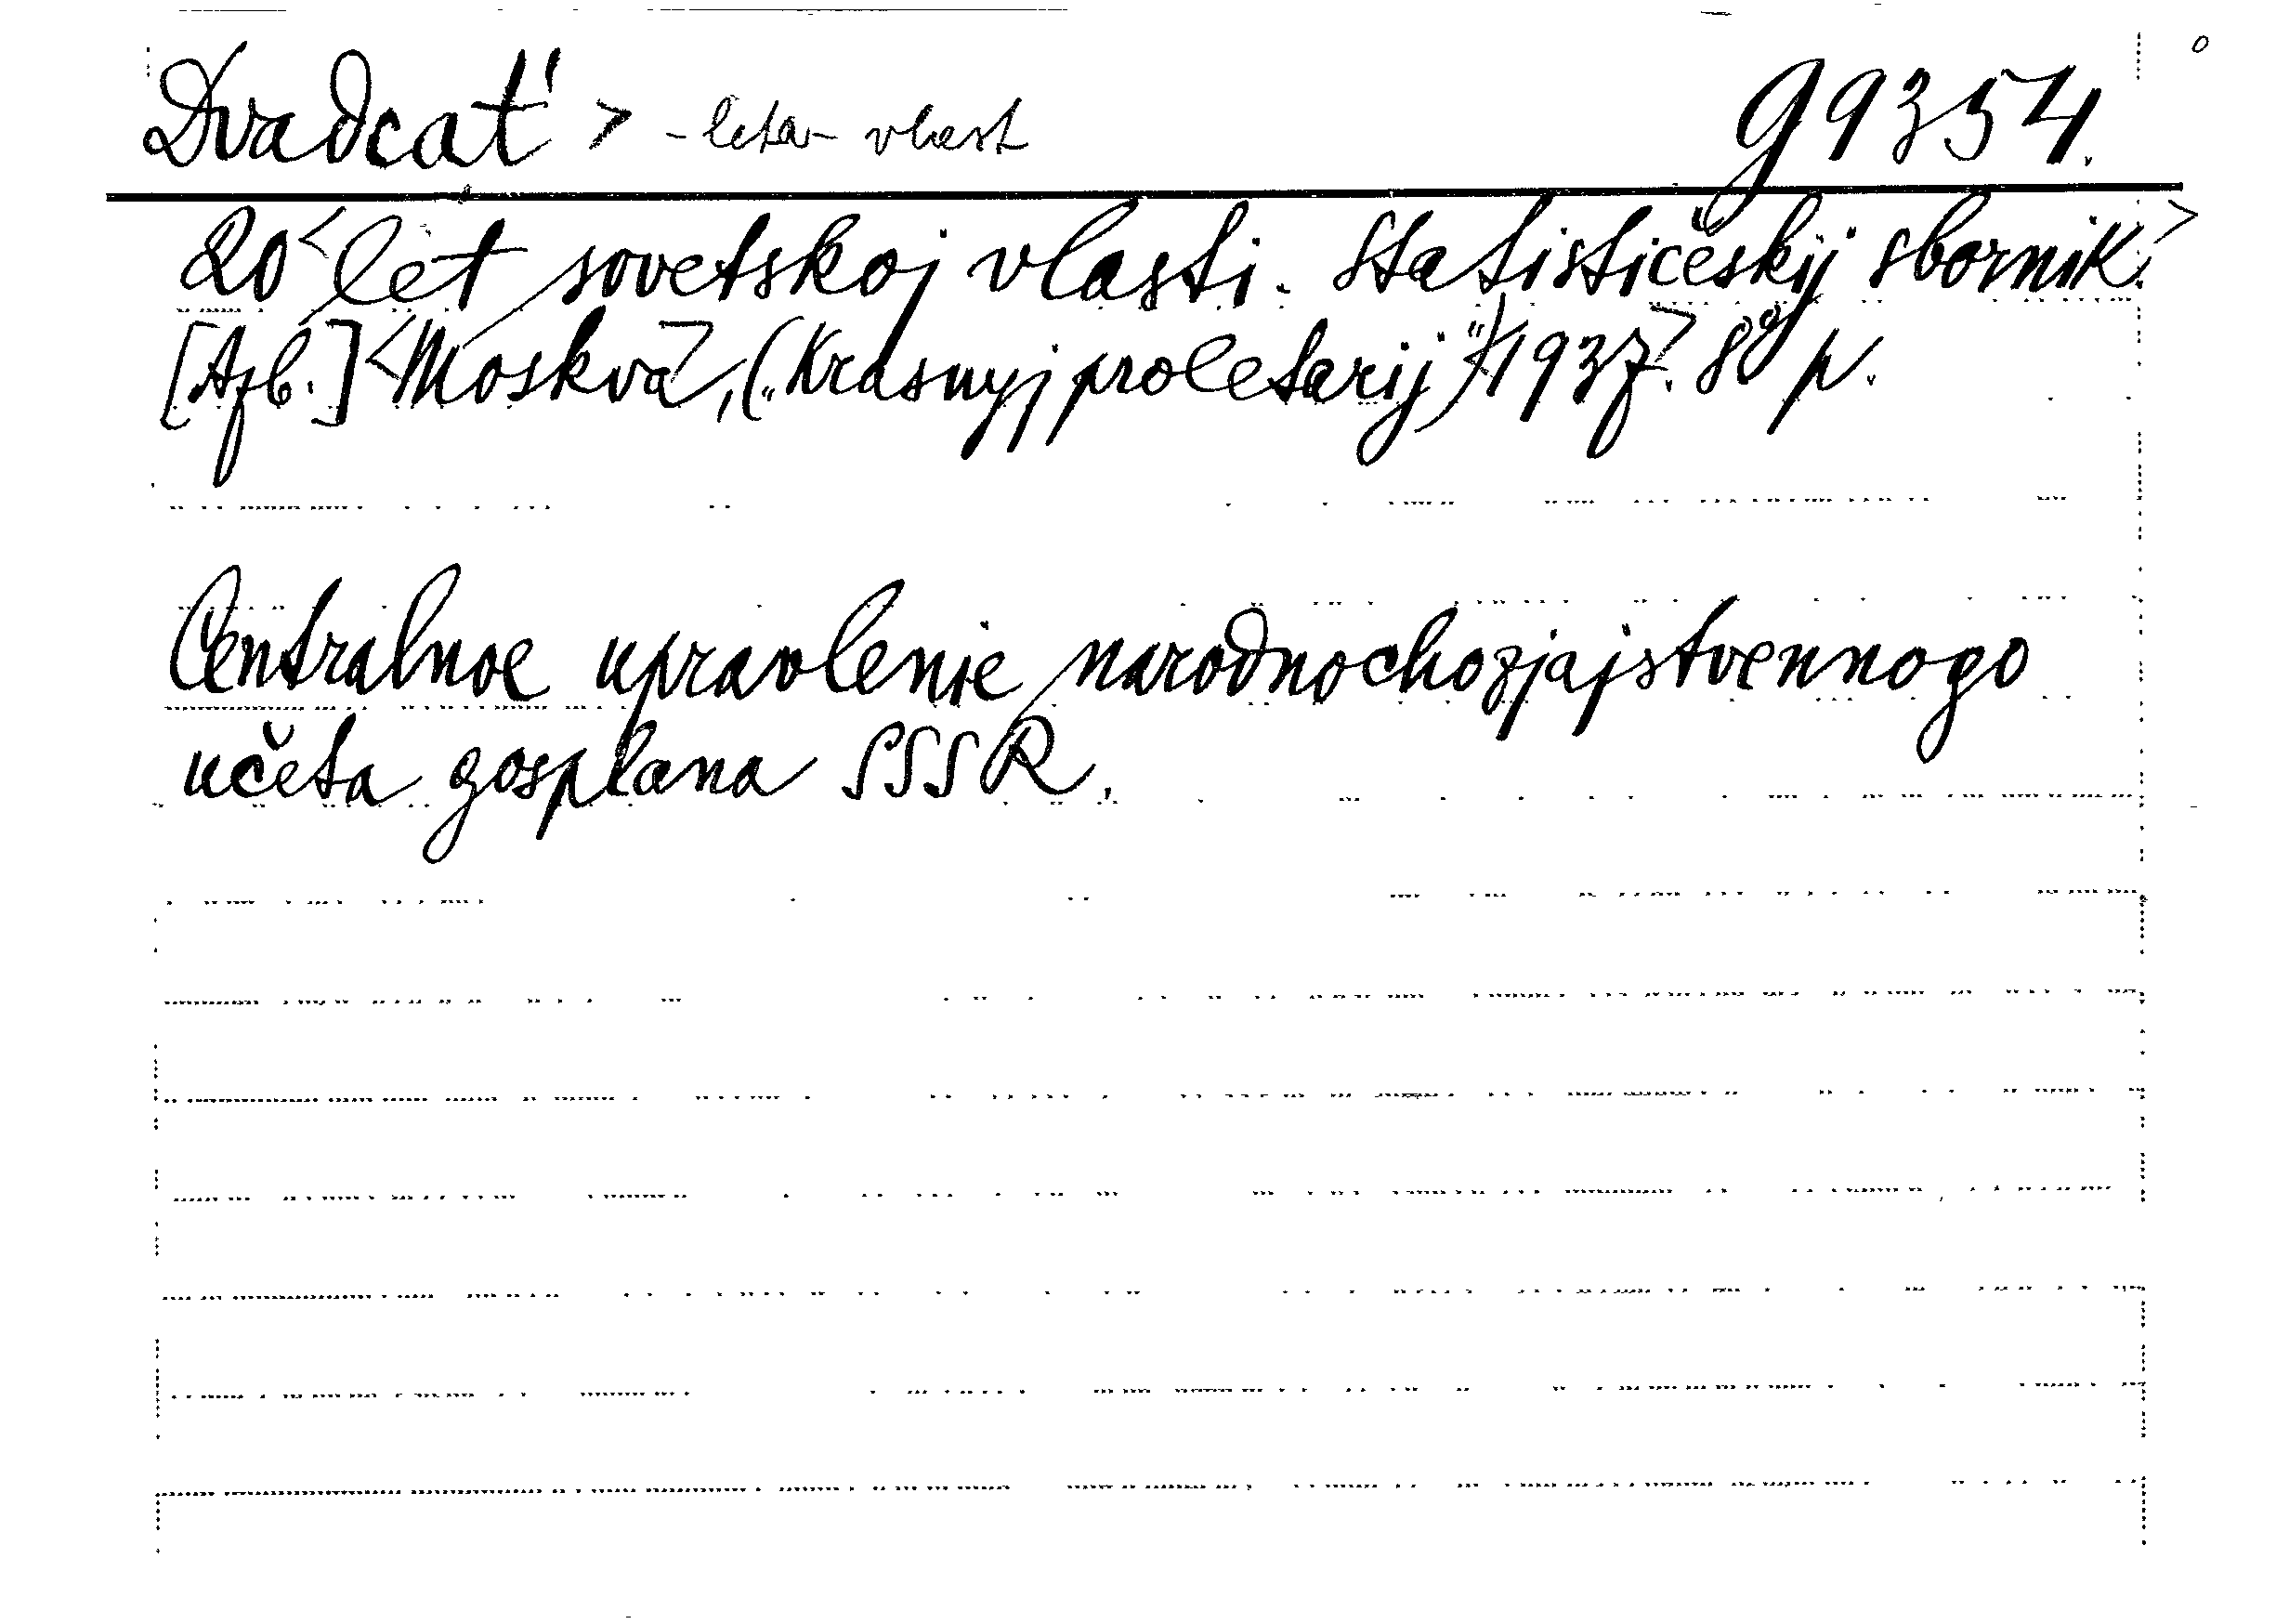 Dvadcat' > - leta - vlast g 9354.
20 <let sovetskoj vlasti. Statističeskij sbornik.>
[Azb.] <Moskva>, („Krasnyj proletarij") <1937>. 8° p.
Centralnoe upravlenie narodnochozjajstvennogo
učeta gosplana SSSR.